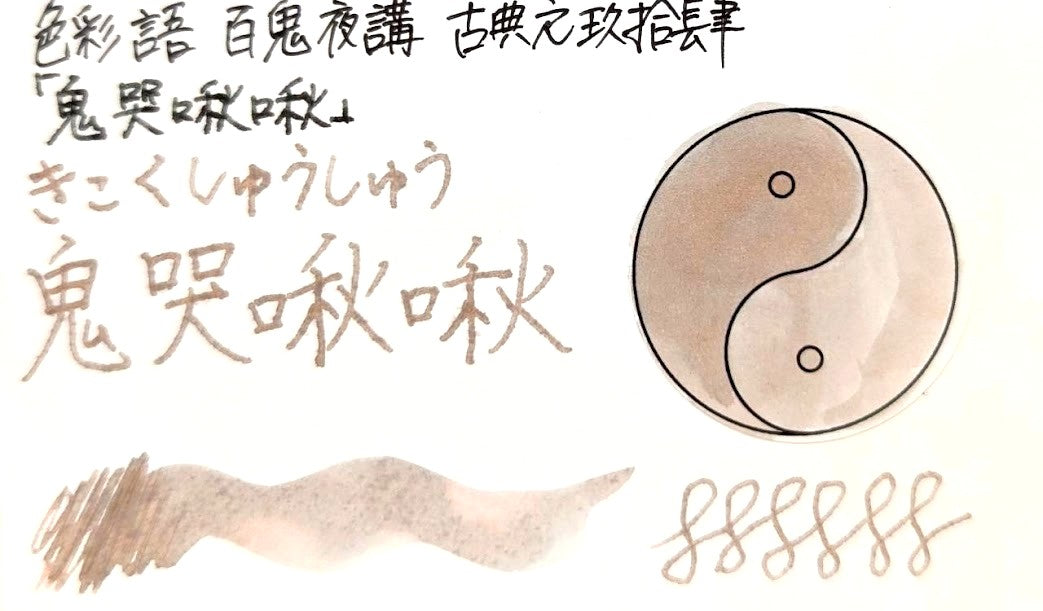 色彩語 百鬼夜講 古典元玖拾肆
「鬼哭啾啾」
きこくしゅうしゅう
鬼哭啾啾